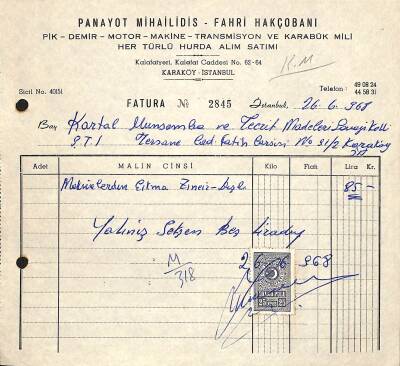 PANAYOT MİHAİLİDİS - FAHRİ HAKÇOBANI
PİK - DEMİR - MOTOR - MAKİNE - TRANSMİSYON VE KARABÜK MİLİ
HER TÜRLÜ HURDA ALIM SATIMI
Kalafatyeri, Kalafat Caddesi No. 62-64
KARAKÖY - İSTANBUL
K.M
Sicil No. 40151
Telefon: 49 08 24
44 58 31
FATURA № 2845 İstanbul, 26.6.1968
Bay Kartal Muşamba ve Tecrit Maddeleri Sanayi Koll
Ş.T.İ Tersane Cad. Fatih No 31/2 Karaköy
Adet MALIN CİNSİ Kilo Fiatı Lira Kr.
Makinelerden Çıkma Zincir Dişli 85 -
Yalnız Seksen Beş Liradır
M/318
26 968